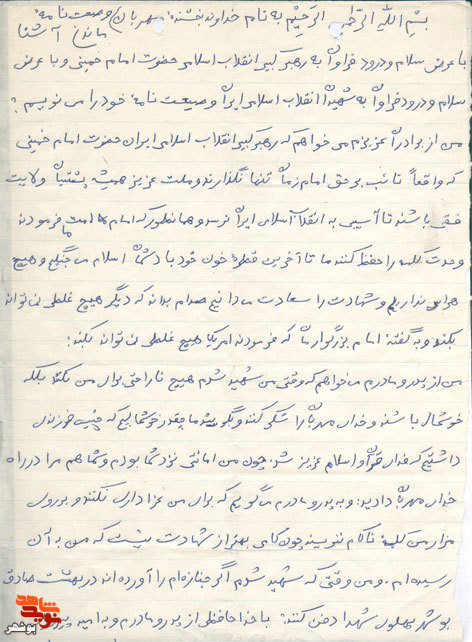 بسم الله الرحمن الرحیم به نام خداوند بخشنده مهربان وصیت نامه
ماشاالله آشنا
با عرض سلام و درود فراوان به رهبر کبیر انقلاب اسلامی حضرت امام خمینی و با عرض
سلام و درود فراوان به شهیدان انقلاب اسلامی ایران وصیعت نامه خود را می نویسم.
من از برادران عزیزم می خواهم که رهبر کبیر انقلاب اسلامی ایران حضرت امام خمینی
که واقعاً نائب برحق امام زمان تنها نگذارند و ملت عزیز همیشه پشتیبان ولایت
فقی باشند تا آسیبی به انقلاب اسلامی ایران نرسد و همانطور که امام امت فرمودند
وحدت کلمه را حفظ کنند ما تا آخرین قطره خون خود با دشمنان اسلام می جنگیم و هیچ
هراسی نداریم و شهادت را سعادت می دانیم صدام بداند که دیگر هیچ غلطی نمی تواند
بکند و به گفته امام بزرگوارمان که فرمودند امریکا هیچ غلطی نمی تواند بکند:
من از پدر و مادرم می خواهم که وقتی من شهید شدم هیچ ناراحتی برای من نکنند بلکه
خوشحال باشند و خدای مهربان را شکر کنند و بگویند ما چقدر خوشحالیم که چنین فرزندی
داشتیم که فدای قرآن و اسلام عزیز شد. چون من امانتی نزد شما بودم و شما هم مرا در راه
خدای مهربان دادید: و به پدر و مادرم می گویم که برای من عزاداری نکنند و بر روی
مزار من کلمه ناکام ننویسند چون کامی بهتر از شهادت نیست که من به آن
رسیده ام. و من وقتی که شهید شدم اگر جنازه ام را آورده اند در بهشت صادق
بوشهر پهلوی شهدا دفن کنند: با خداحافظی از پدر و مادرم و به امید
نوید شاهد
بوشهر